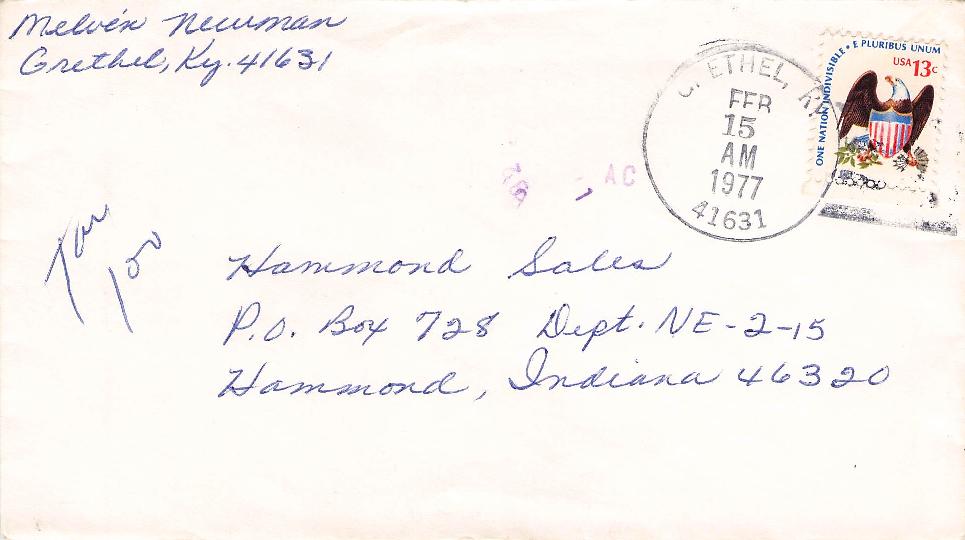 Melvin Newman
Grethel, Ky. 41631
GRETHEL, KY
FEB
15
AM
1977
41631
ONE NATION INDIVISIBLE • E PLURIBUS UNUM
USA 13c
AC
100
Hammond Sales
P.O. Box 728 Dept. NE-2-15
Hammond, Indiana 46320